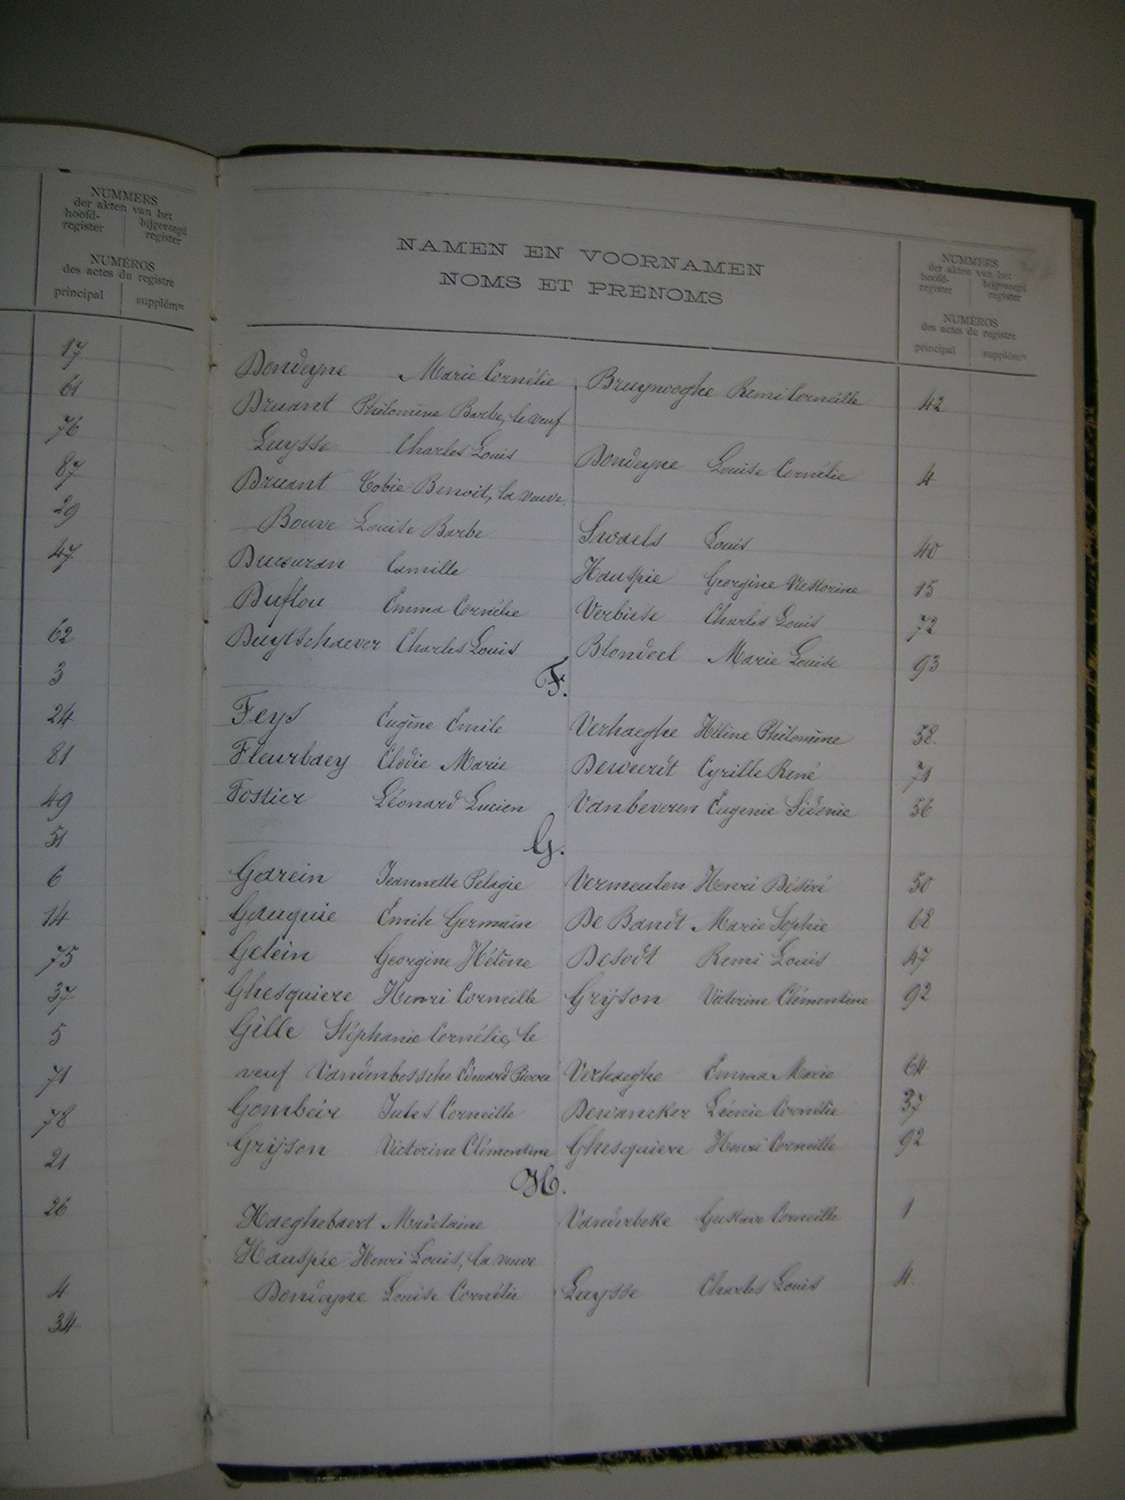 NUMMERS
der akten van het
hoofd-register
bijgevoegd register
NUMÉROS
des actes du registre
principal
supplémre
17
61
76
87
29
47
62
3
24
81
49
51
6
14
75
37
5
71
78
21
26
4
34
NAMEN EN VOORNAMEN
NOMS ET PRÉNOMS
NUMMERS
der akten van het
hoofd-register
bijgevoegd register
NUMÉROS
des actes du registre
principal
supplémre
Dondeyne Marie Cornélie Bruynooghe Remi Corneille 42
Druant Philomène Barbe, le veuf
Luysse Charles Louis Dondeyne Louise Cornélie 4
Druant Tobie Benoit, la veuve
Bouve Louise Barbe Swaels Louis 40
Camille Hauspie Georgine Nestorine 15
Duflou Emma Cornélie Verbiese Charles Louis 72
Duytschaever Charles Louis Blondeel Marie Louise 93
F.
Feys Eugène Emile Verhaeghe Hélène Philomène 58
Fleurbaey Élodie Marie Deweerdt Cyrille René 71
Fostier Léonard Lucien Vanbeveren Eugenie Sidonie 56
G.
Garein Jeannette Pélagie Vermeulen Henri Désiré 50
Gauquie Emile Germain De Bandt Marie Sophie 68
Gelein Georgine Hélène Desodt Remi Louis 47
Ghesquiere Henri Corneille Gryson Victorine Clémentine 92
Gille Stéphanie Cornélie, le
veuf Vandenbossche Edouard Pierre Verhaeghe Emma Marie 64
Gombeir Jules Corneille Dewancker Léonie Cornélie 37
Gryson Victorine Clémentine Ghesquiere Henri Corneille 92
H.
Haeghebaert Madelaine Vanderbeke Gustave Corneille 1
Hauspie Henri Louis, la veuve
Dondeyne Louise Cornélie Luysse Charles Louis 4.